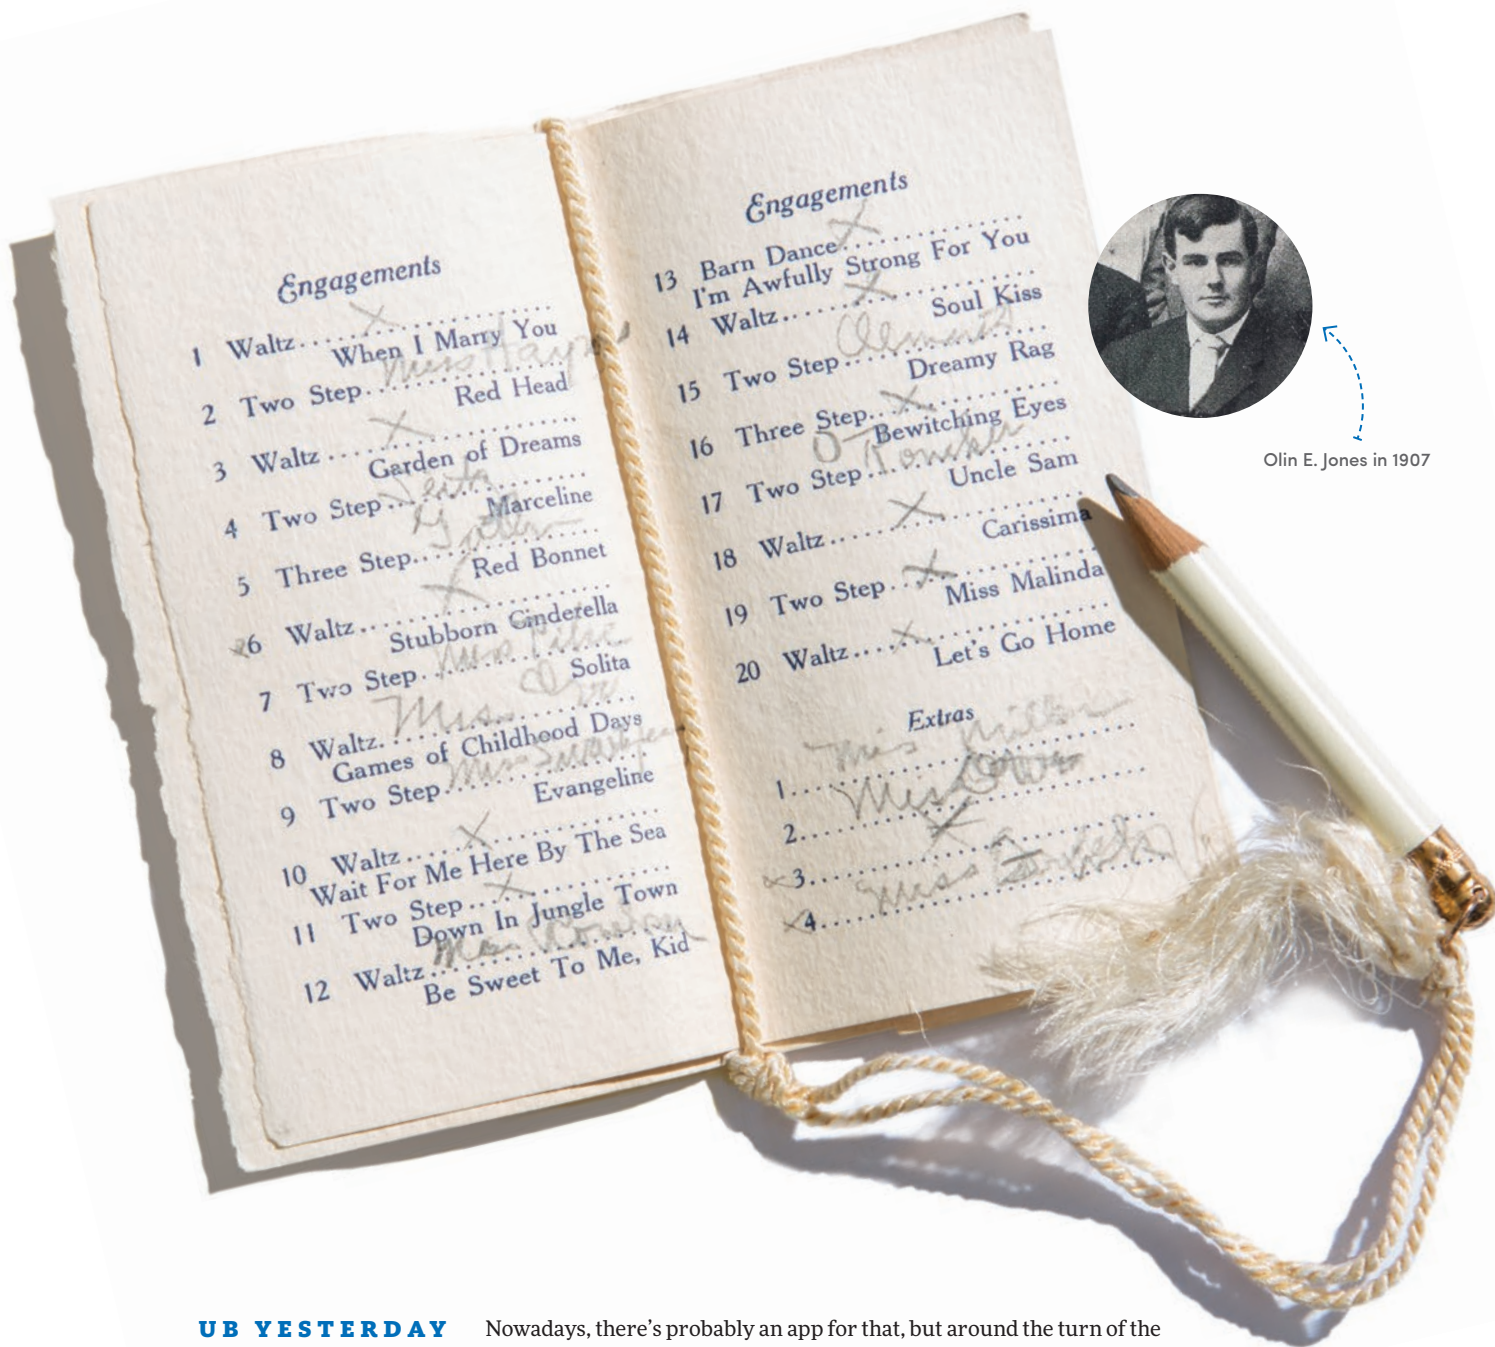 Engagements
1 Waltz
X
When I Marry You
2 Two Step
Miss
Red Head
3 Waltz
X
Garden of Dreams
4 Two Step
Marceline
5 Three Step
Red Bonnet
6 Waltz
X
Stubborn Cinderella
7 Two Step
Miss
Solita
8 Waltz
Miss
Games of Childhood Days
9 Two Step
Miss
Evangeline
10 Waltz
X
Wait For Me Here By The Sea
11 Two Step
X
Down In Jungle Town
12 Waltz
Be Sweet To Me, Kid
Engagements
13 Barn Dance
X
I'm Awfully Strong For You
14 Waltz
X
Soul Kiss
15 Two Step
Dreamy Rag
16 Three Step
X
Bewitching Eyes
17 Two Step
Uncle Sam
18 Waltz
X
Carissima
19 Two Step
X
Miss Malinda
20 Waltz
X
Let's Go Home
Extras
1
Miss
2
Miss
x3
X
x4
Miss
Olin E. Jones in 1907
UB YESTERDAY
Nowadays, there's probably an app for that, but around the turn of the